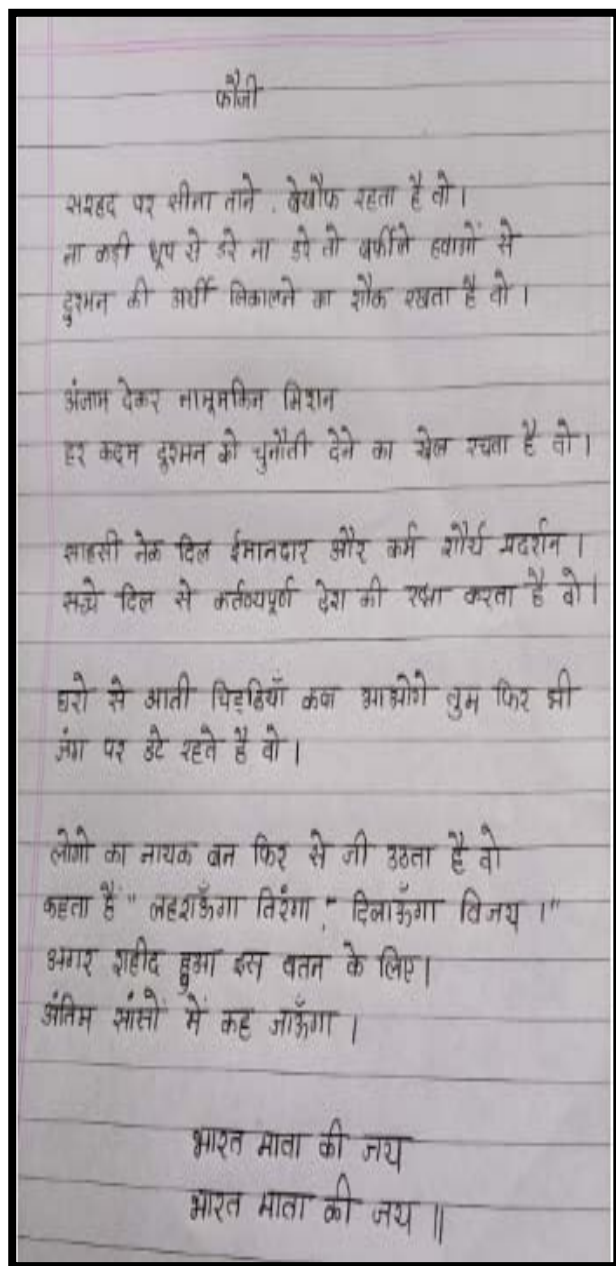 फौजी
सरहद पर सीना ताने , बेखौफ रहता है वो ।
ना कड़ी धूप से डरे ना डरे वो बर्फीले हवाओं से
दुश्मन की अर्थी निकालने का शौक रखता है वो ।
अंजाम देकर नामूमकिन मिशन
हर कदम दुश्मन को चुनौती देने का खेल रचता है वो ।
साहसी नेक दिल ईमानदार और कर्म शौर्य प्रदर्शन ।
सच्चे दिल से कर्तव्यपूर्ण देश की रक्षा करता है वो ।
घरो से आती चिट्ठियाँ कब आओगे तुम फिर भी
जंग पर डटे रहते है वो ।
लोगो का नायक बन फिर से जी उठता है वो
कहता है " लहराऊँगा तिरंगा , दिलाऊँगा विजय ।"
अगर शहीद हुआ इस वतन के लिए ।
अंतिम सांसों में कह जाऊँगा ।
भारत माता की जय
भारत माता की जय ॥